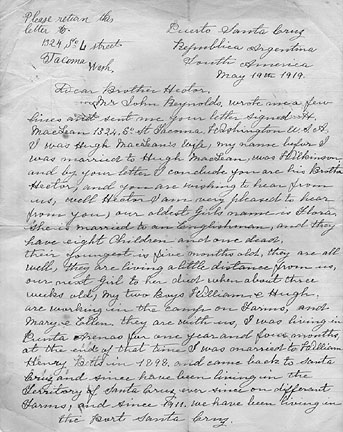 Please return this
letter to
1324 So L street
Tacoma
Wash.
Puerto Santa Cruz
Republica Argentina
South America
May 19th 1919.
Dear Brother Hector,
Mr John Reynolds, wrote me a few
lines and sent me your letter signed H.
MacLean 1324, St Tacoma Washington U.S.A.
I was Hugh MacLean's wife, my name before I
was married to Hugh MacLean, was Wilkinson
and by your letter I conclude you are his Brother
Hector, and you are wishing to hear from
us, well Hector I am very pleased to hear
from you, our oldest Girls name is Flora.
She is married to an Englishman, and they
have eight Children and one dead,
their youngest is five months old, they are all
well, they are living a little distance from us,
our next Girl to her died when about three
weeks old, My two Boys William & Hugh,
are working in the Camp on Farms, and
Mary & Ellen they are with us, I was living in
Punta Arenas for one year and four months,
at the end of that time I was married to William
Henry in 1898, and came back to Santa
Cruz and since have been living in the
Territory of Santa Cruz, ever since on different
Farms, and since we have been living in
the Port Santa Cruz.